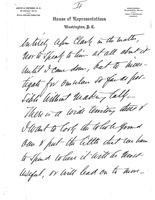 House of Representatives
Washington, D. C.
entirely upon Clark in the matter,
nor to speak to him at all about it
until I came down, but to inves-
tigate for ourselves so far as pos-
sible without
There is a wide territory there &
I want to look the whole ground
over & put the little that we have
to spend where it will be most
useful, or will lead on to more